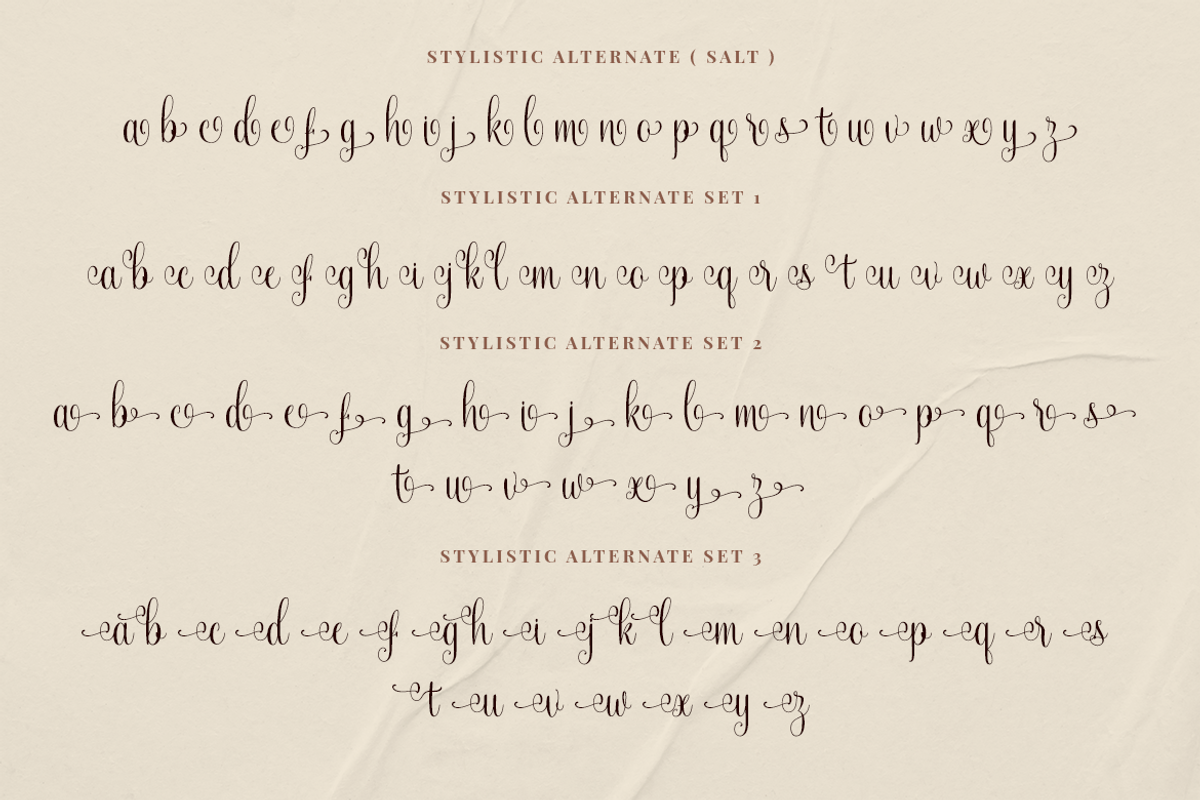 STYLISTIC ALTERNATE ( SALT )
a b c d e f g h i j k l m n o p q r s t u v w x y z
STYLISTIC ALTERNATE SET 1
a b c d e f g h i j k l m n o p q r s t u v w x y z
STYLISTIC ALTERNATE SET 2
a b c d e f g h i j k l m n o p q r s
t u v w x y z
STYLISTIC ALTERNATE SET 3
a b c d e f g h i j k l m n o p q r s
t u v w x y z